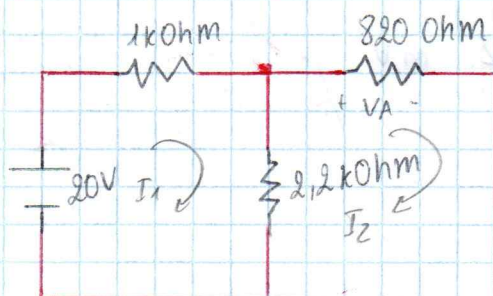 1kOhm
820 Ohm
+ VA -
20V
I1
2,2kOhm
I2